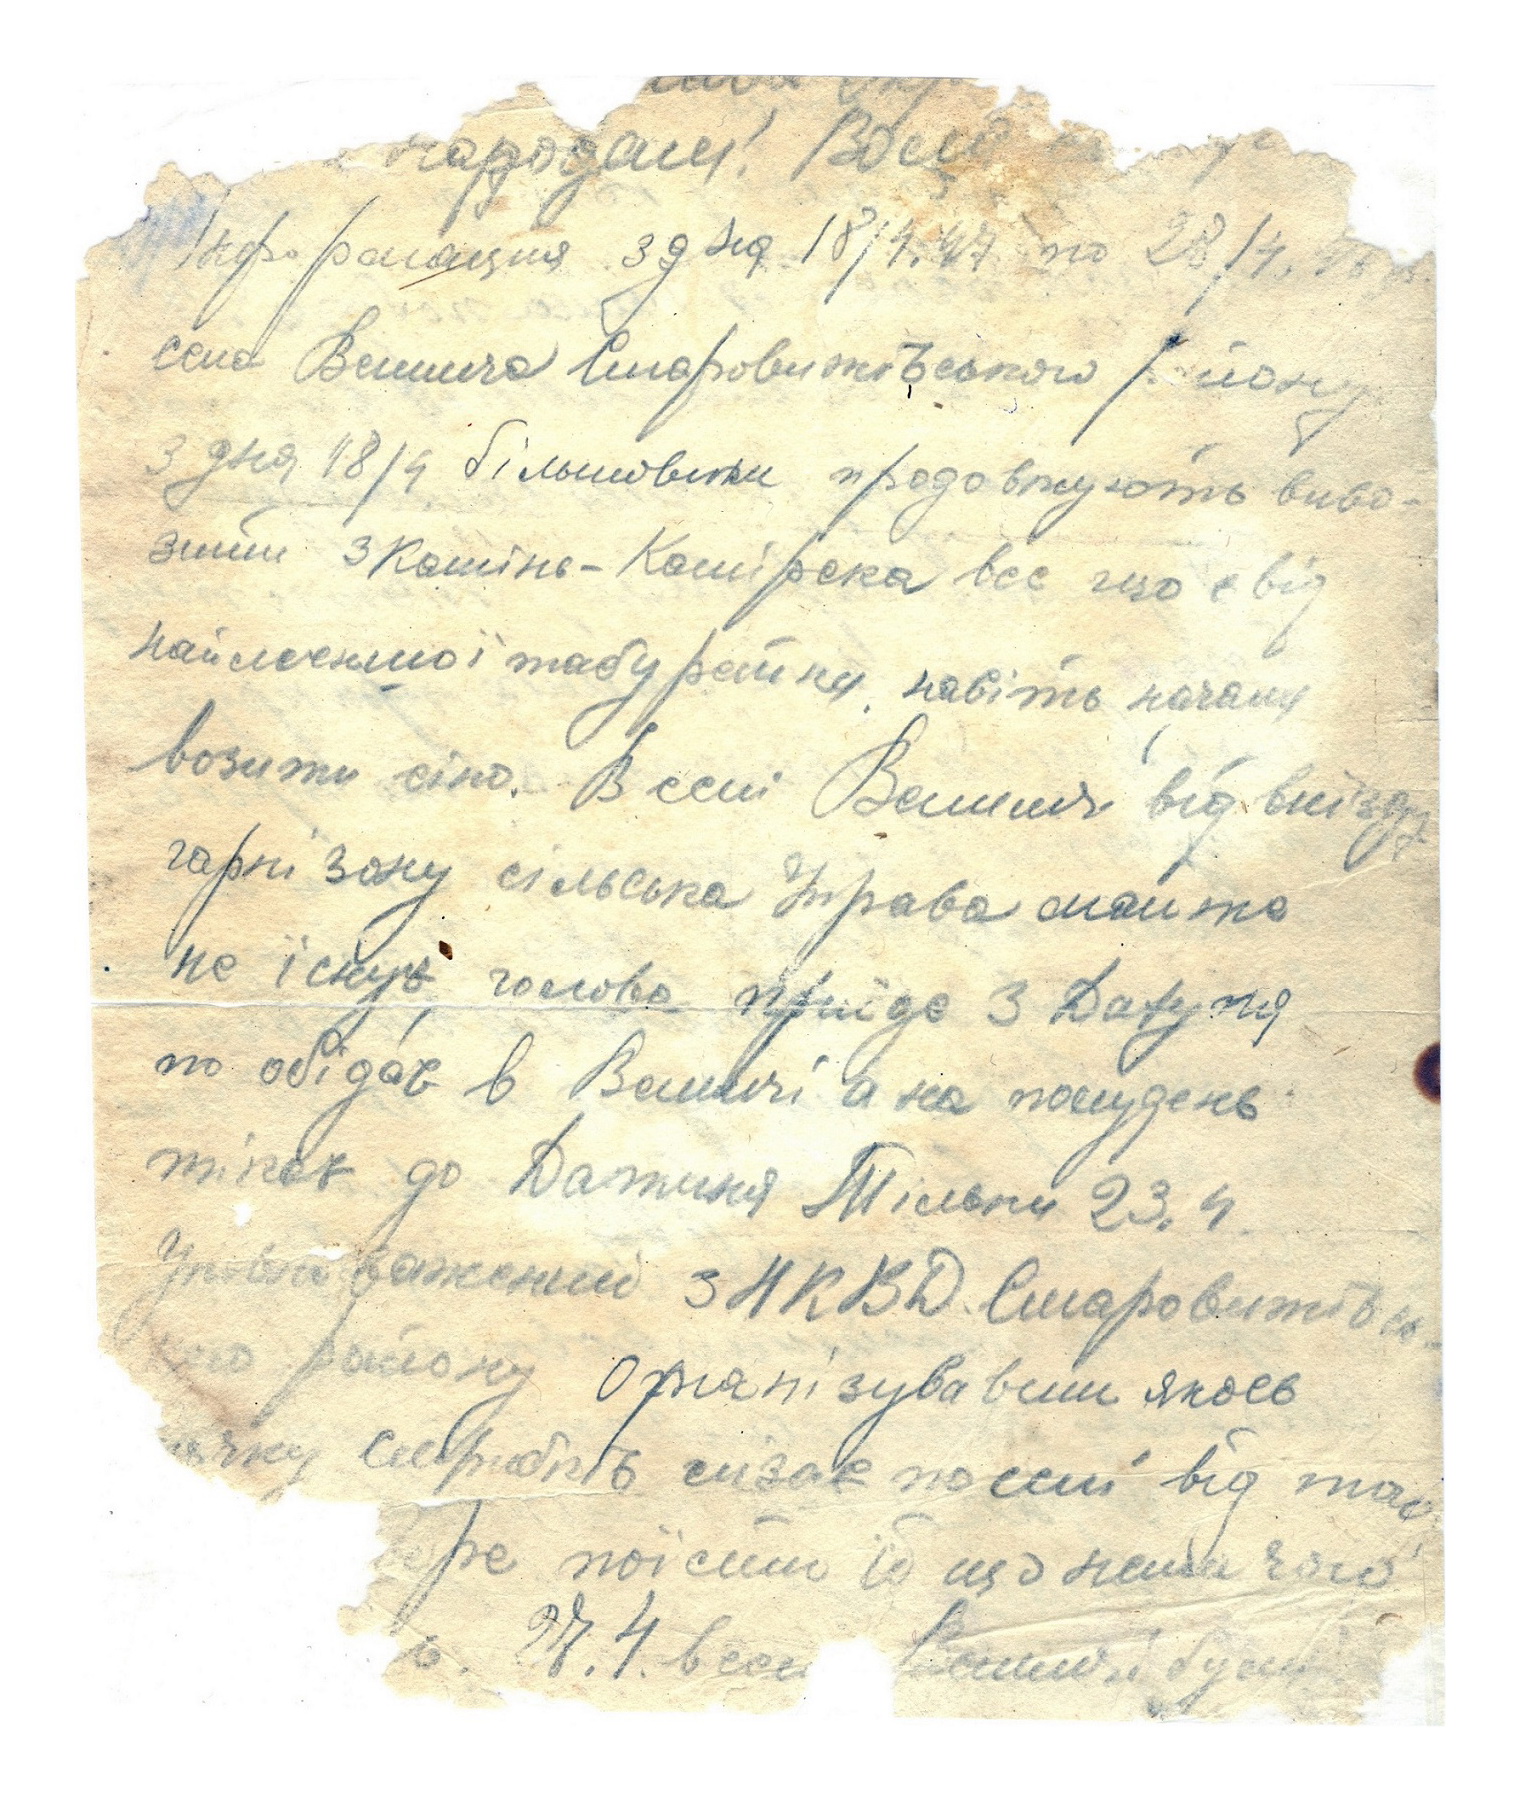 народам! Волі
Інформація з дня 18/4. 47 по 28/4.
села Велимча Старовижівського району
з дня 18/4 більшовики продовжують виво-
зити з Камінь-Кашірска все що є від
найменшої табуретки, навіть начали
возити сіно. В селі Велимчі від виїзду
гарнізону сільська Управа майже
не їснує, голова приїде з Датуня
по обідає в Велимчі а на полудень
тікає до Датиня Тільки 23. 4.
Уповноважений з НКВД Старовижівсь-
кого району Організувавши якоєсь
ястрибків лизає по селі від
бере поїсти їй що нема чого
27. 4. в селі Велимчі були